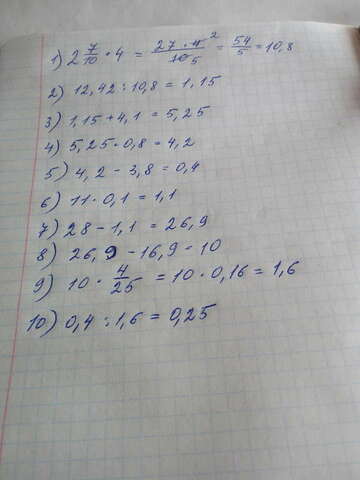 1) 2 7/10 · 4 = 27 · 4 2 / 10 5 = 54/5 = 10,8
2) 12,42 : 10,8 = 1,15
3) 1,15 + 4,1 = 5,25
4) 5,25 · 0,8 = 4,2
5) 4,2 - 3,8 = 0,4
6) 11 · 0,1 = 1,1
7) 28 - 1,1 = 26,9
8) 26,9 - 16,9 = 10
9) 10 · 4/25 = 10 · 0,16 = 1,6
10) 0,4 : 1,6 = 0,25